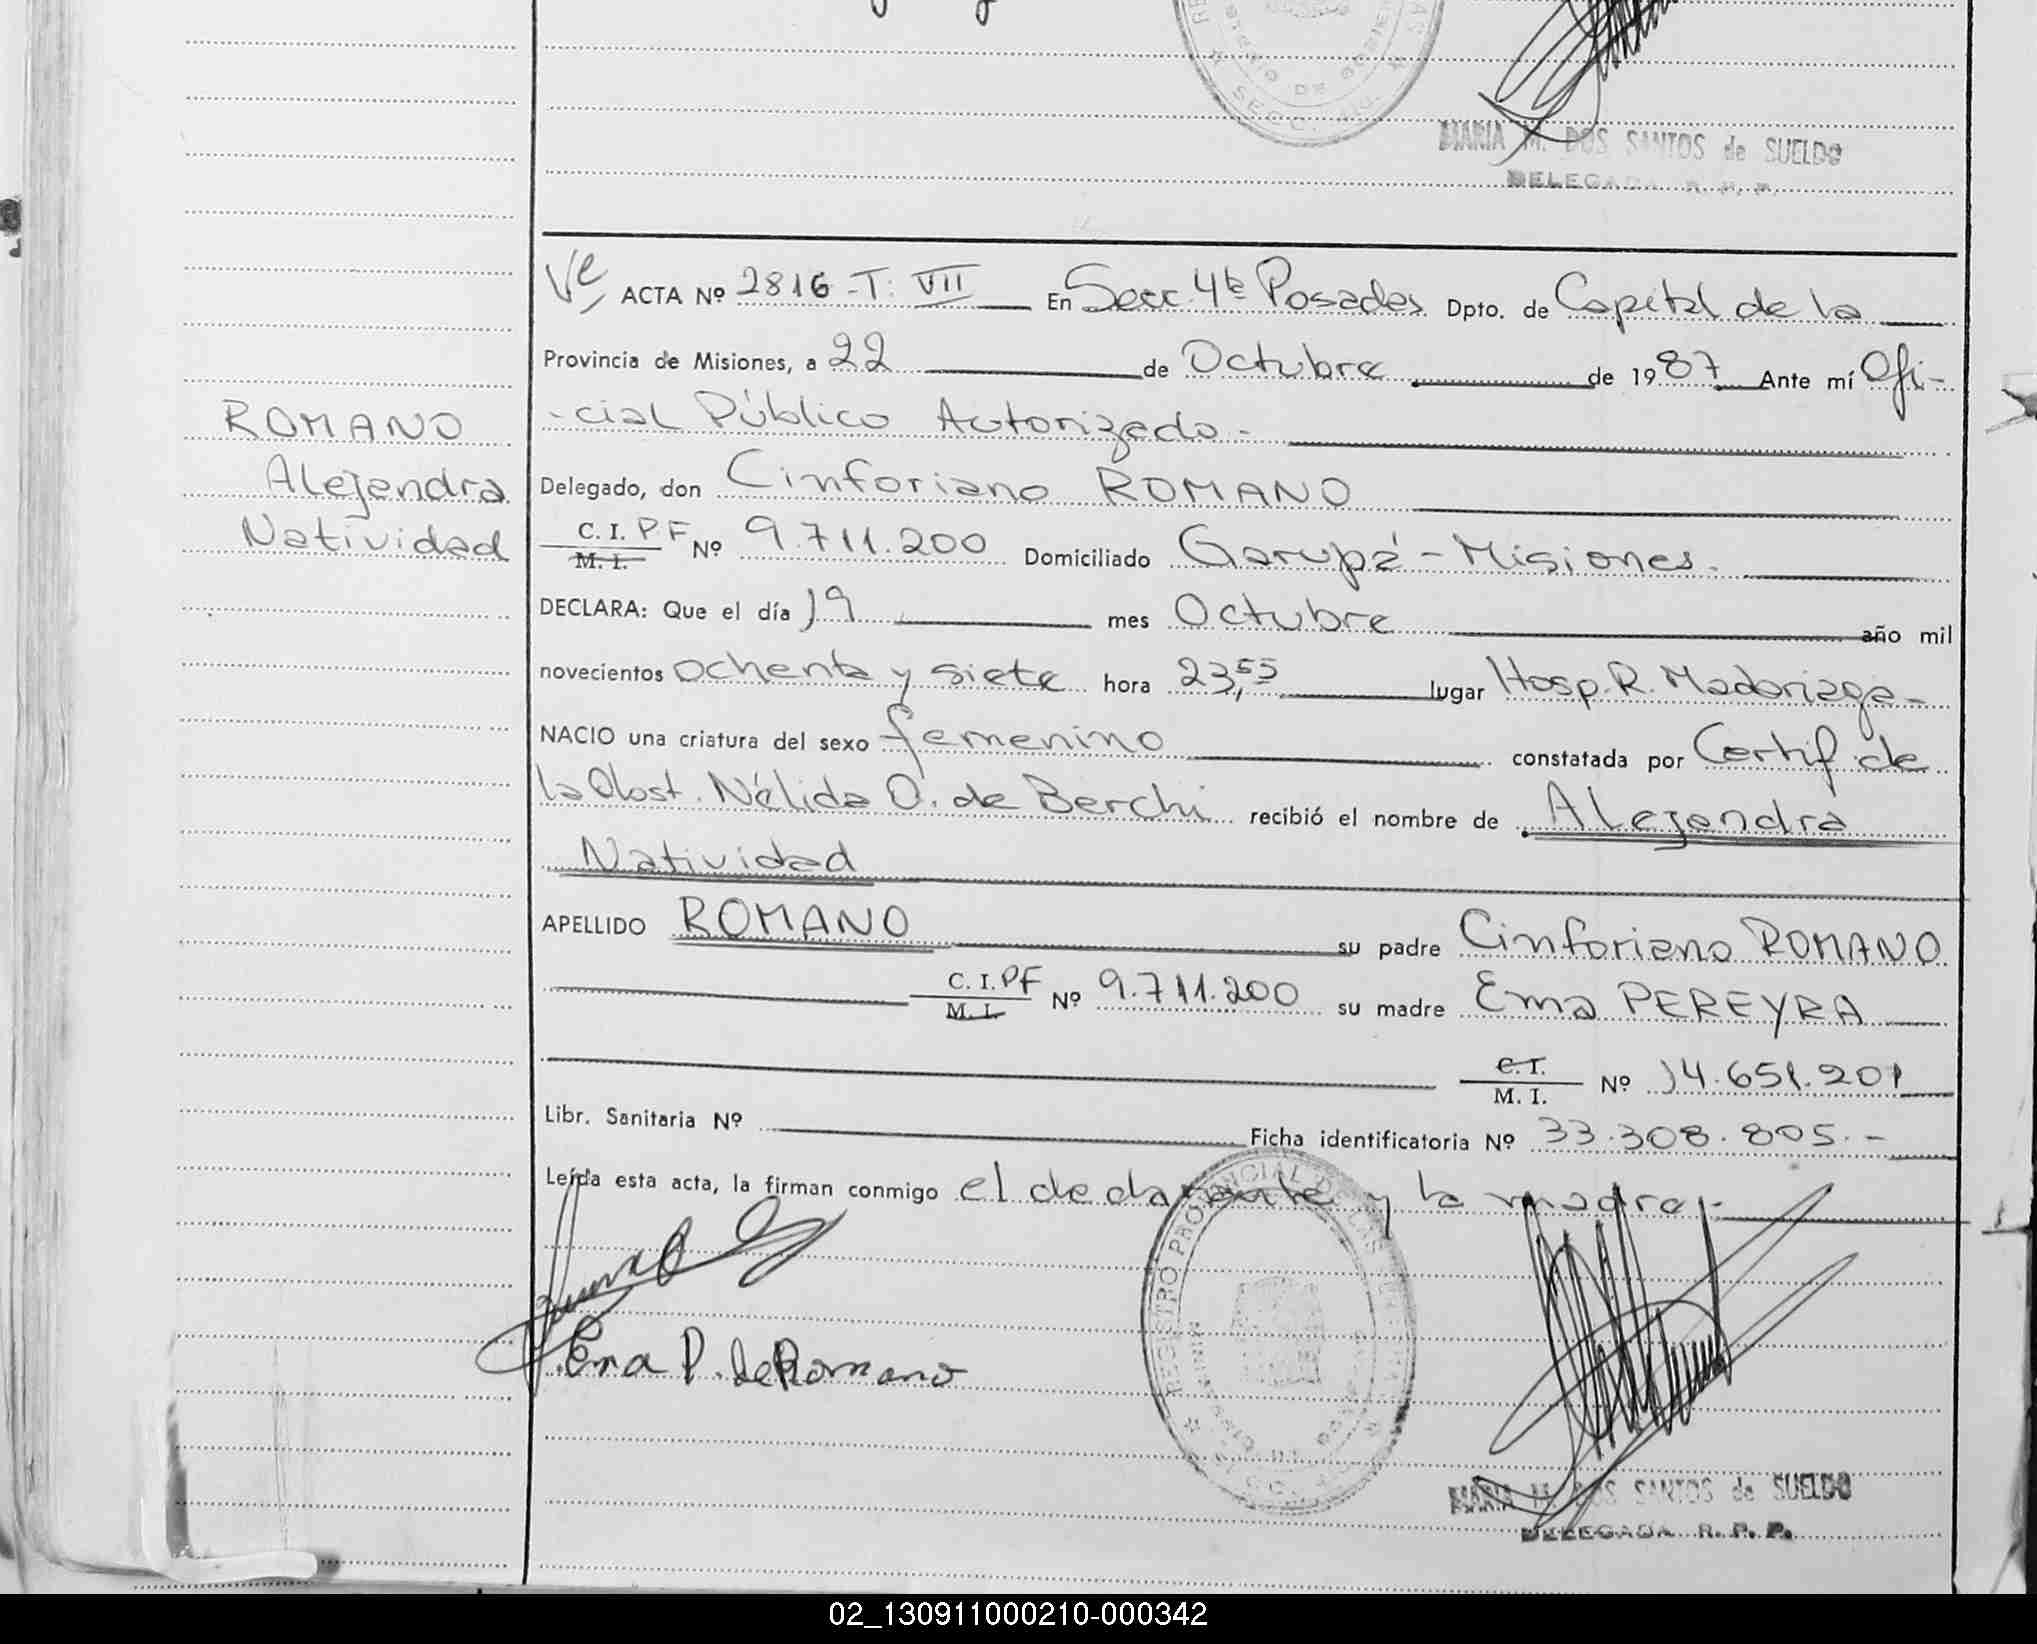 MARIA M. DOS SANTOS de SUELDO
DELEGADA R. P. P.
Ve ACTA Nº 2816-T: VII En Secc. 4ta Posadas Dpto. de Capital de la
Provincia de Misiones, a 22 de Octubre de 1987 Ante mí Ofi-
-cial Público Autorizado.-
ROMANO
Alejandra
Natividad
Delegado, don Cinforiano ROMANO
C. I. PF Nº 9.711.200 Domiciliado Garupá - Misiones.
M. I.
DECLARA: Que el día 19 mes Octubre año mil
novecientos ochenta y siete hora 23,55 lugar Hosp. R. Madariaga-
NACIO una criatura del sexo femenino constatada por Certif. de
la Obst. Nélida O. de Berchi recibió el nombre de Alejandra
Natividad
APELLIDO ROMANO su padre Cinforiano ROMANO
C. I. PF Nº 9.711.200 su madre Ema PEREYRA
M. I.
C. I.
M. I. Nº 14.651.201
Libr. Sanitaria Nº Ficha identificatoria Nº 33.308.805.-
Leída esta acta, la firman conmigo el declarante y la madre.-
Ema P. de Romano
REGISTRO PROVINCIAL DE LAS PERSONAS
MARIA M. DOS SANTOS de SUELDO
DELEGADA R. P. P.
02_130911000210-000342